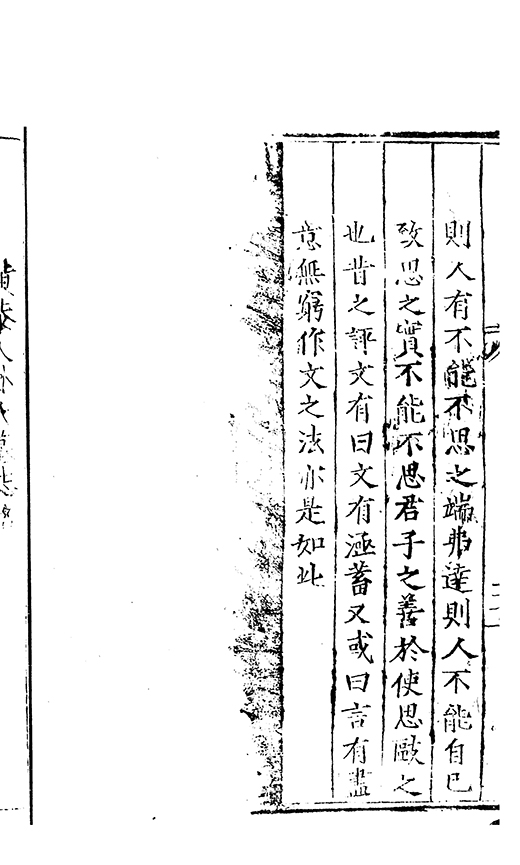 則人有不能不思之端弗達則人不能自已
致思之實不能不思君子之善於使思歟之
也昔之評文有曰文有涵蓄又或曰言有盡
意無窮作文之法亦是如此